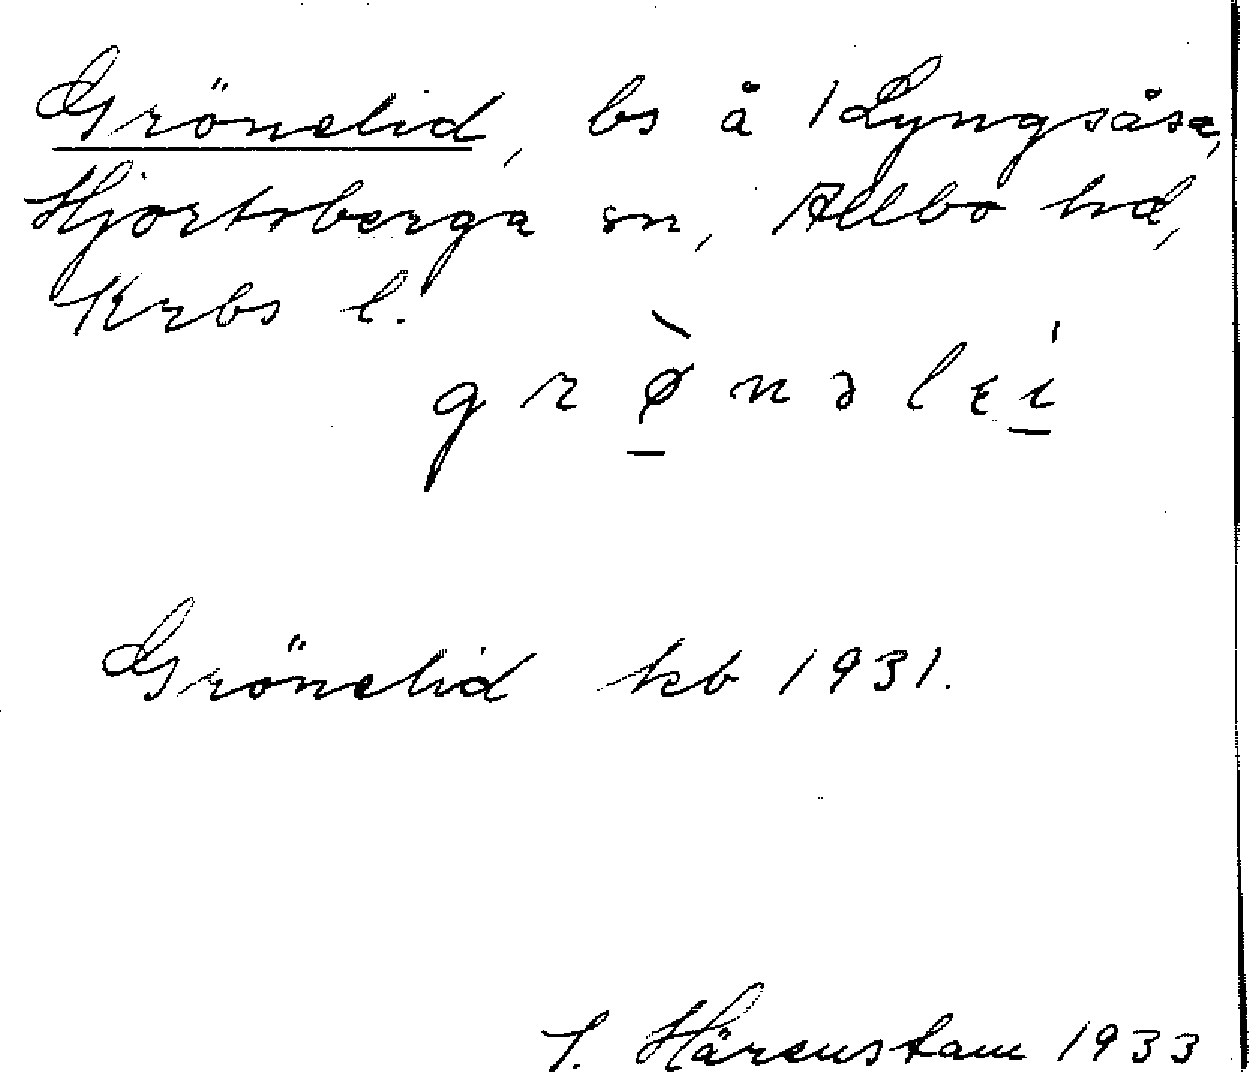 Grönelid, bs å 1 Lyngsåsa,
Hjortsberga sn, Allbo hd,
Krbs l.
grø̀nəlɛi
Grönelid kb 1931.
J. Härenstam 1933